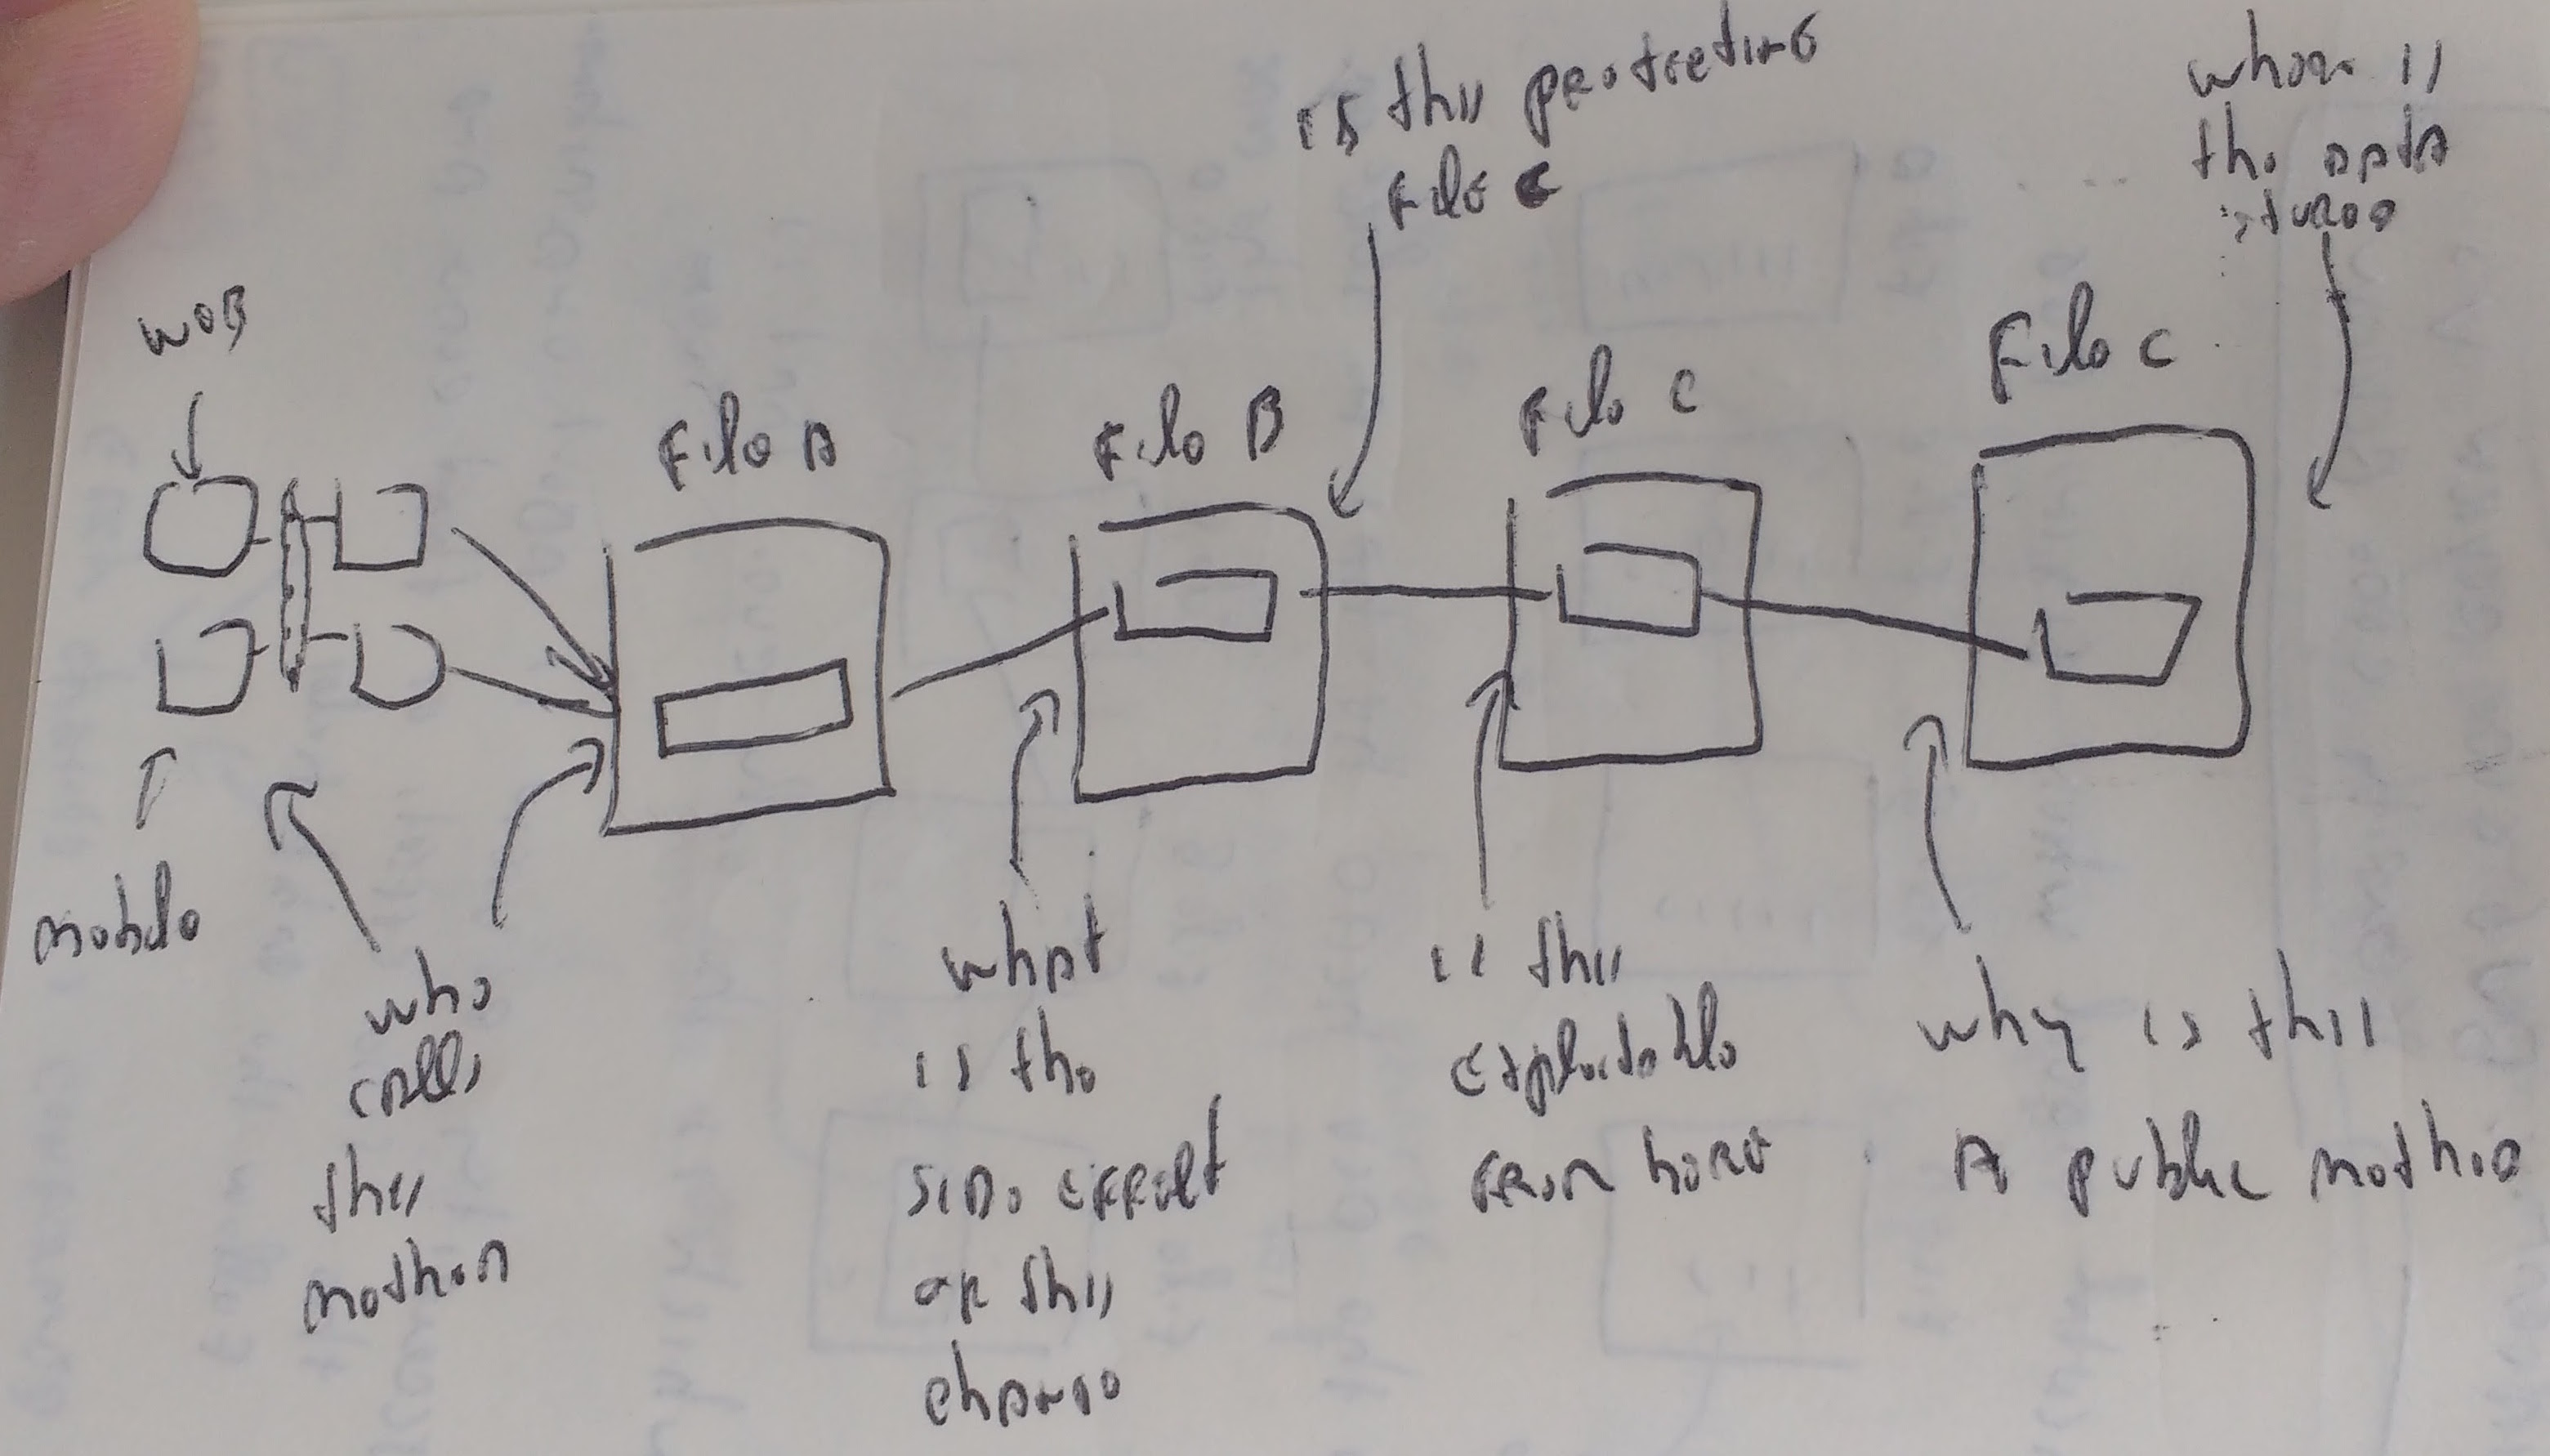 is this protecting
File C
where is
the data
stored
web
File A
File B
File C
File C
mobile
who
calls
this
method
what
is the
side effect
of this
change
is this
exploitable
from here
why is this
a public method